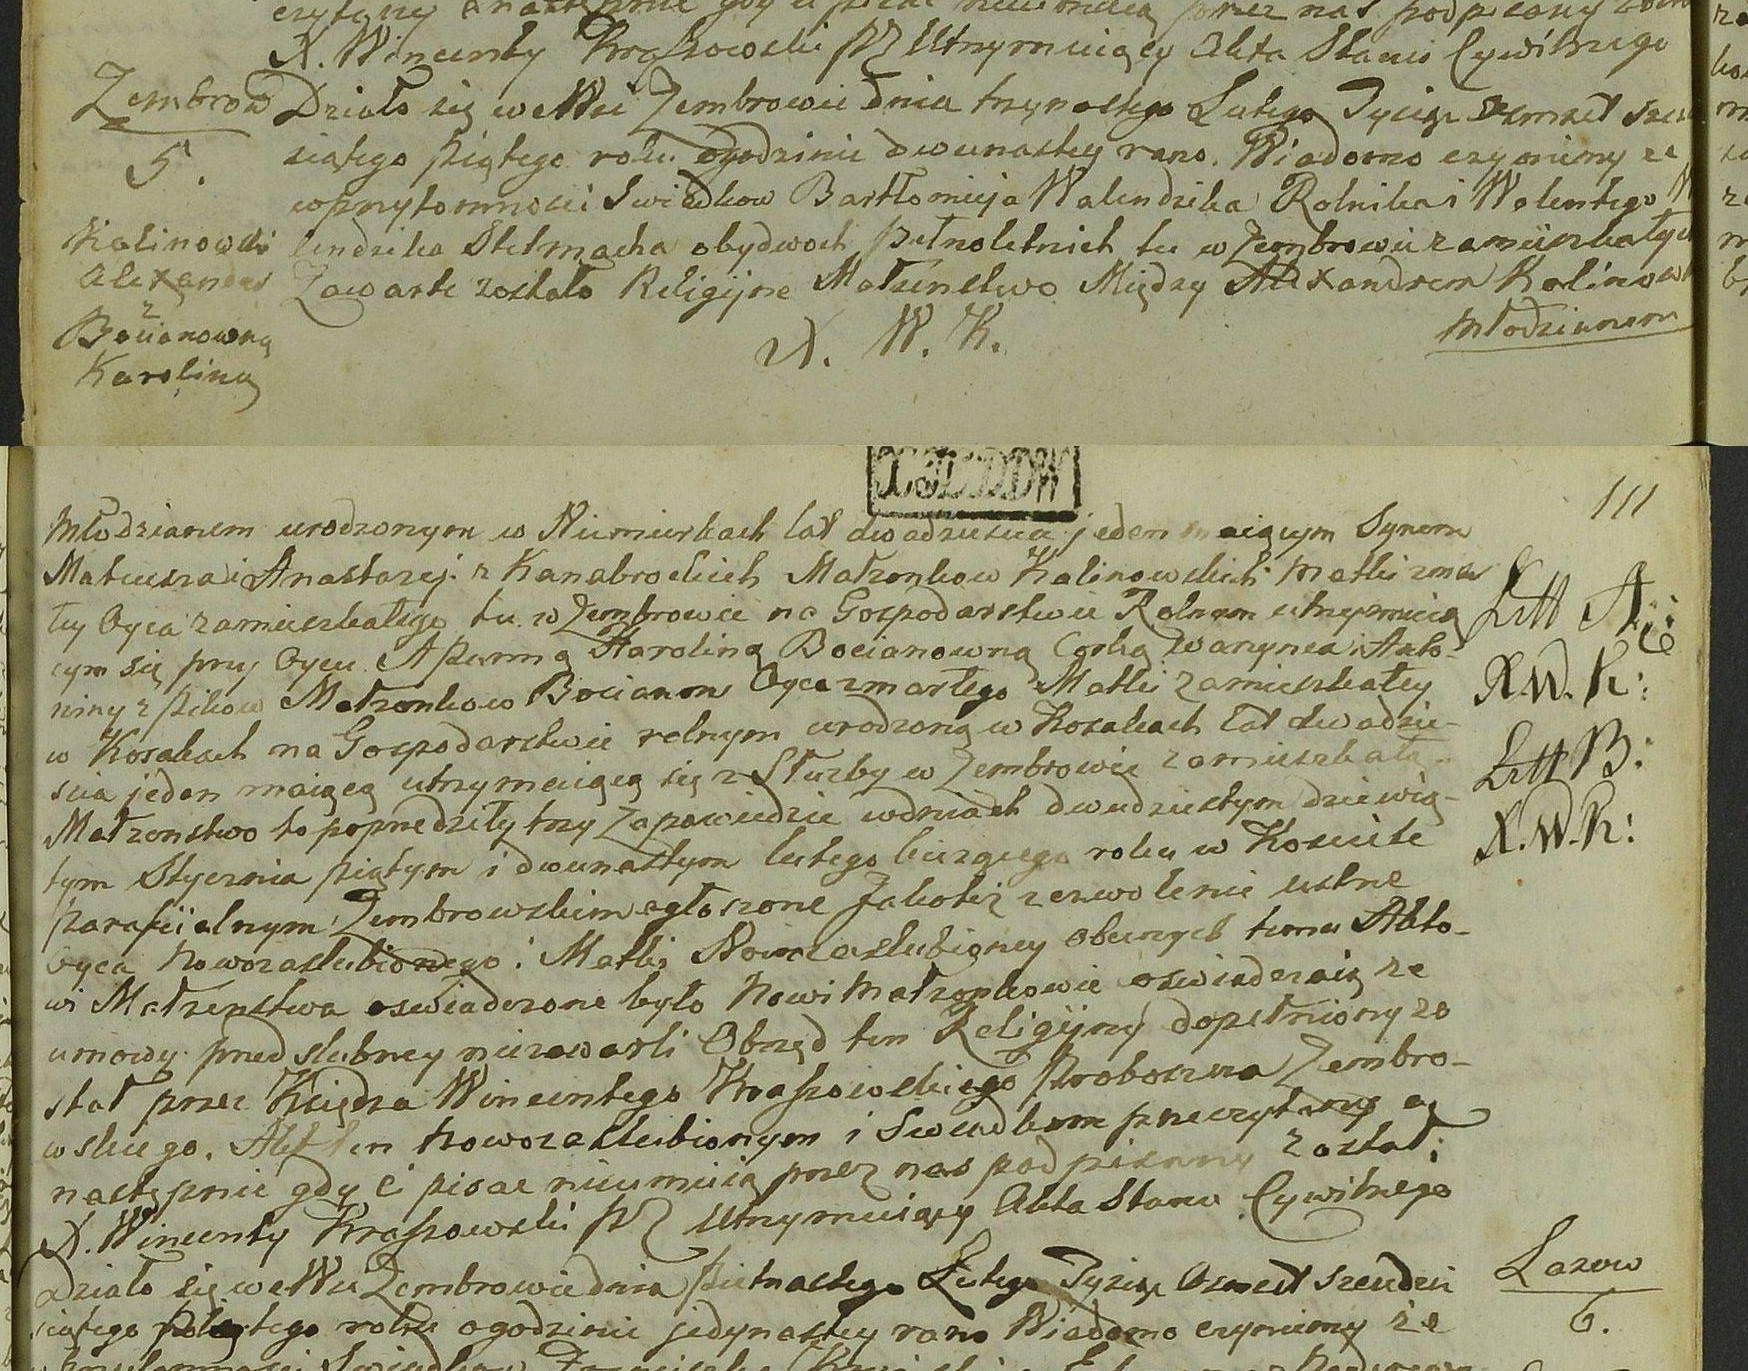 czytany a następnie gdy ci pisać nieumieią przez nas podpisany
X. Wincenty Kraszowski PZ Utrzymuiący Akta Stanu Cywilnego
Zembrow
5.
Kalinowski
Alexander
z
Bocianowną
Karoliną
Działo się we Wsi Zembrowie dnia trzynastego Lutego Tysiąc Osmset
siątego piątego roku ogodzinie dwunastey rano. Wiadomo czyniemy ze
wprzytomności Swiadkow Bartłomieja Walendzika Rolnika i Walentego
lendzika Stelmacha obydwoch pełnoletnich tu w Zembrowie zamieszkałych
Zawarte zostało Religijne Małżenstwo Między Alexandrem Kalinow
Młodzianem
X. W. K.
111
Młodzianem urodzonym w Niemirkach lat dwadziescia jeden maiącym Synem
Mateusza i Anastazej z Kanabrockich Małzonkow Kalinowskich Matki zmar
łey Oyca zamieszkałego tu w Zembrowie na Gospodarstwie Rolnym utrzymuią
cym się przy Oycu. A Panną Karoliną Bocianowną Corką Wawrynca i Anto-
niny z Pikow Małzonkow Bocianow Oyca zmarłego Matki zamieszkałey
w Kosakach na Gospodarstwie rolnym urodzoną w Kosakach lat dwadzie-
scia jeden maiącą utrzymuiącą się z Służby w Zembrowie zamieszkałą.
Małzenstwo to poprzedziły trzy Zapowiedzie wdniach dwudziestym dziewią-
tym Stycznia piątym i dwunastym lutego bieżącego roku w Kosciele
parafiialnym Zembrowskim ogłoszone Jakotez zezwolenie ustne
oyca Nowozaslubionego i Matki Nowozaslubioney obecnych temu Akto-
wi Małzenstwa oswiadczone było Nowi Małzonkowie oswiadczaią ze
umowy przedslubney niezawarli Obrzęd ten Religijny dopełniony zo
stał przez Księdza Wincentego Kraszowskiego Proboszcza Zembro-
wskiego. Akt ten Nowozaslubionym i Swiadkom przeczytany a
następnie gdy ci pisać nieumieią przez nas podpisany został;
X. Wincenty Kraszowski PZ Utrzymuiący Akta Stanu Cywilnego
Litt A:
X.W.K:
Litt B:
X.W.K:
Działo się we Wsi Zembrowie dnia pietnastego Lutego Tysiąc Osmset szescdzie
siątego piątego roku ogodzinie jedynastey rano Wiadomo czyniemy że
Łazow
6.